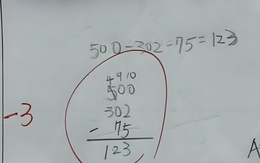 500-302=75=123
4 9 10
500
302
- 75
123
-3
A